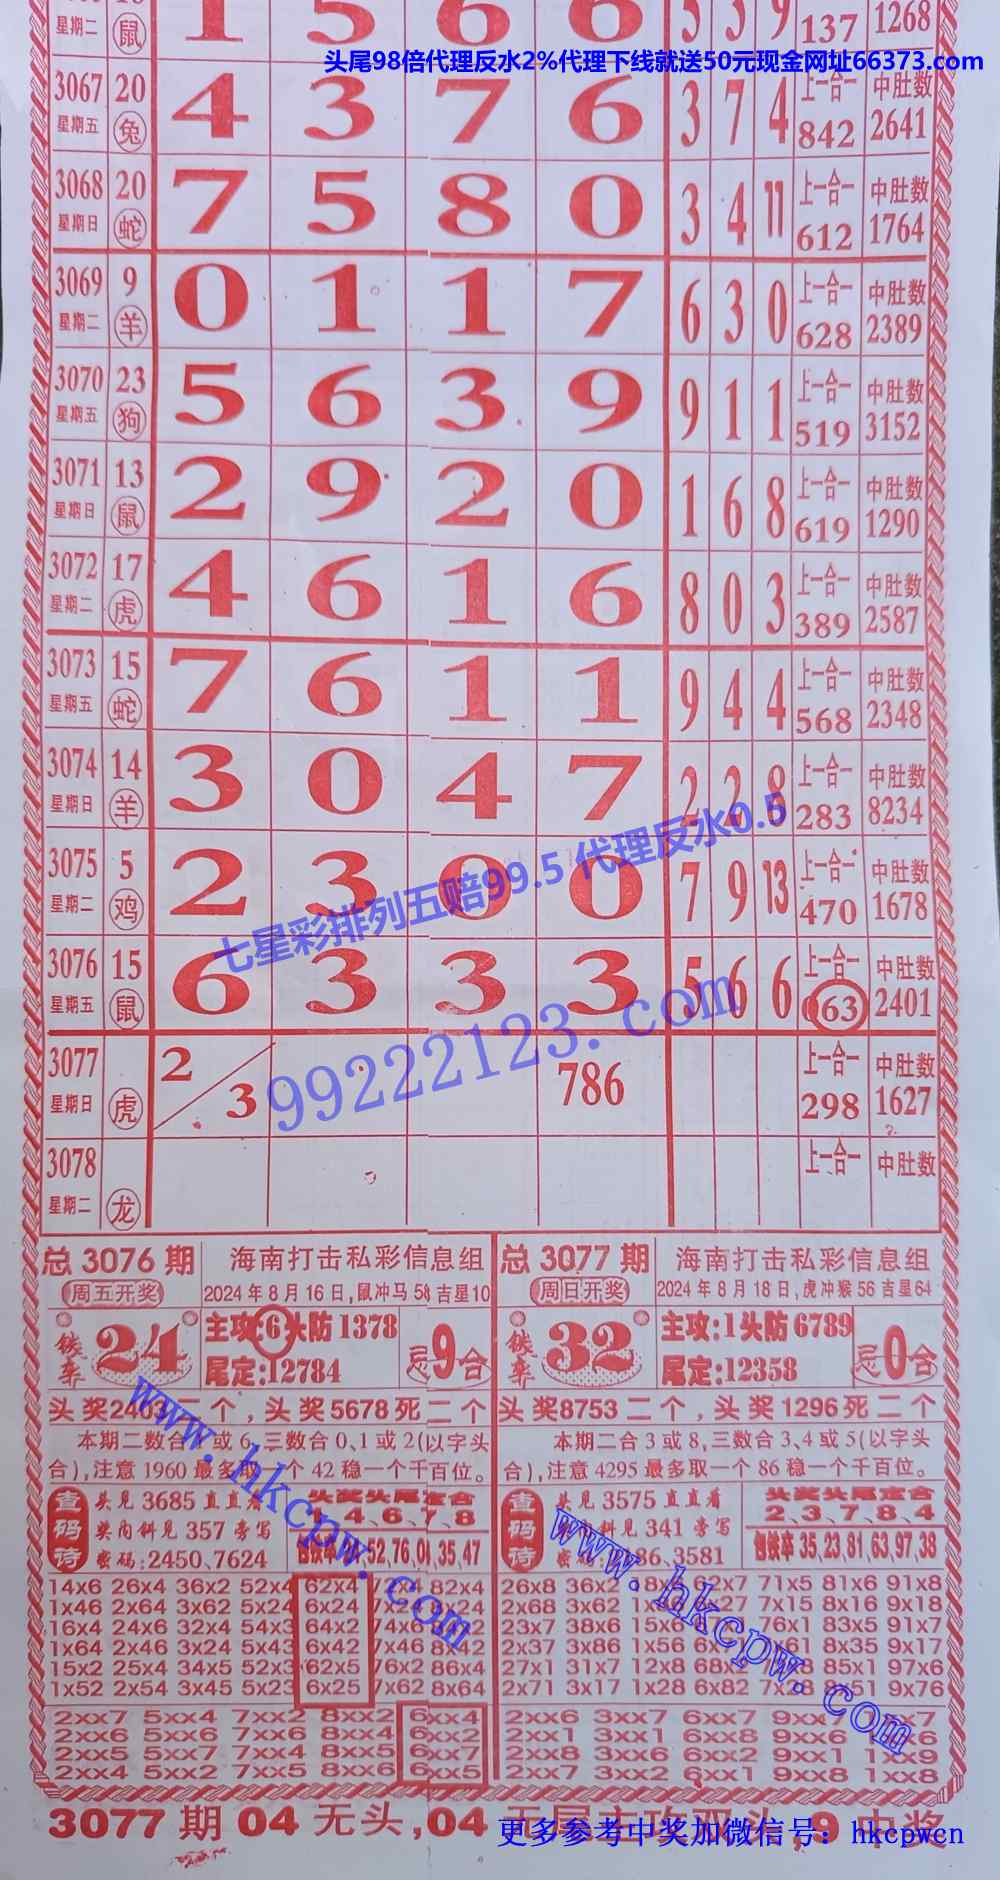 星期二 鼠 1 5 6 6 5 3 9 137 1268
头尾98倍代理反水2%代理下线就送50元现金网址66373.com
3067 20 4 3 7 6 3 7 4 上一合一 中肚数
星期五 兔 842 2641
3068 20 7 5 8 0 3 4 11 上一合一 中肚数
星期日 蛇 612 1764
3069 9 0 1 1 7 6 3 0 上一合一 中肚数
星期二 羊 628 2389
3070 23 5 6 3 9 9 1 1 上一合一 中肚数
星期五 狗 519 3152
3071 13 2 9 2 0 1 6 8 上一合一 中肚数
星期日 鼠 619 1290
3072 17 4 6 1 6 8 0 3 上一合一 中肚数
星期二 虎 389 2587
3073 15 7 6 1 1 9 4 4 上一合一 中肚数
星期五 蛇 568 2348
3074 14 3 0 4 7 2 2 8 上一合一 中肚数
星期日 羊 283 8234
七星彩排列五赔99.5 代理反水0.5
3075 5 2 3 0 0 7 9 13 上一合一 中肚数
星期二 鸡 470 1678
3076 15 6 3 3 3 5 6 6 上一合一 中肚数
星期五 鼠 063 2401
99222123.com
3077 2/3 786 上一合一 中肚数
星期日 虎 298 1627
3078 上一合一 中肚数
星期二 龙
总 3076 期 海南打击私彩信息组
周五开奖 2024年8月16日,鼠冲马 58 吉星10
铁卒 24 主攻:6头防1378
尾定:12784 忌9合
头奖5678死二个
本期二数合1或6,三数合0、1或2(以字头
合),注意1960最多取一个42稳一个千百位。
查码诗 头见3685直直看 头奖头尾定合
奖内斜见357旁写 4、6、7、8
密码:2450、7624 35,47
14x6 26x4 36x2 52x4 62x4 82x4
1x46 2x64 3x62 6x24
16x4 24x6 32x4 54x3 64x2
1x64 2x46 3x24 5x43 6x42 7x46
15x2 25x4 34x5 52x3 62x5 76x2 86x4
1x52 2x54 3x45 5x23 6x25 7x62 8x64
2xx7 5xx4 7xx2 8xx2 6xx4
6xx2
2xx5 5xx7 7xx4 8xx5
2xx4 5xx2 7xx5 8xx6 6xx5
总 3077 期 海南打击私彩信息组
周日开奖 2024年8月18日,虎冲猴 56 吉星64
铁卒 32 主攻:1头防6789
尾定:12358 忌0合
头奖8753二个,头奖1296死二个
本期二合3或8,三数合3、4或5(以字头
合),注意4295最多取一个86稳一个千百位。
查码诗 头见3575直直看 头奖头尾定合
奖内斜见341旁写 2、3、7、8、4
3581 包铁卒35,23,81,63,97,38
26x8 36x2 62x7 71x5 81x6 91x8
2x68 3x62 7x15 8x16 9x18
23x7 38x6 15x6 76x1 83x5 91x7
2x37 3x86 1x56 8x35 9x17
27x1 31x7 12x8 68x2 85x1 97x6
2x71 3x17 1x28 6x82 9x76
2xx6 3xx7 6xx7 9xx7
2xx1 6xx8 9xx6
2xx8 3xx6 6xx2 9xx1 1xx9
2xx7 3xx2 6xx1 9xx8 1xx8
www.hkcpw.com
www.hkcpw.com
3077 期 04 无头,04 无尾主攻双头,9 中奖
更多参考中奖加微信号：hkcpwcn